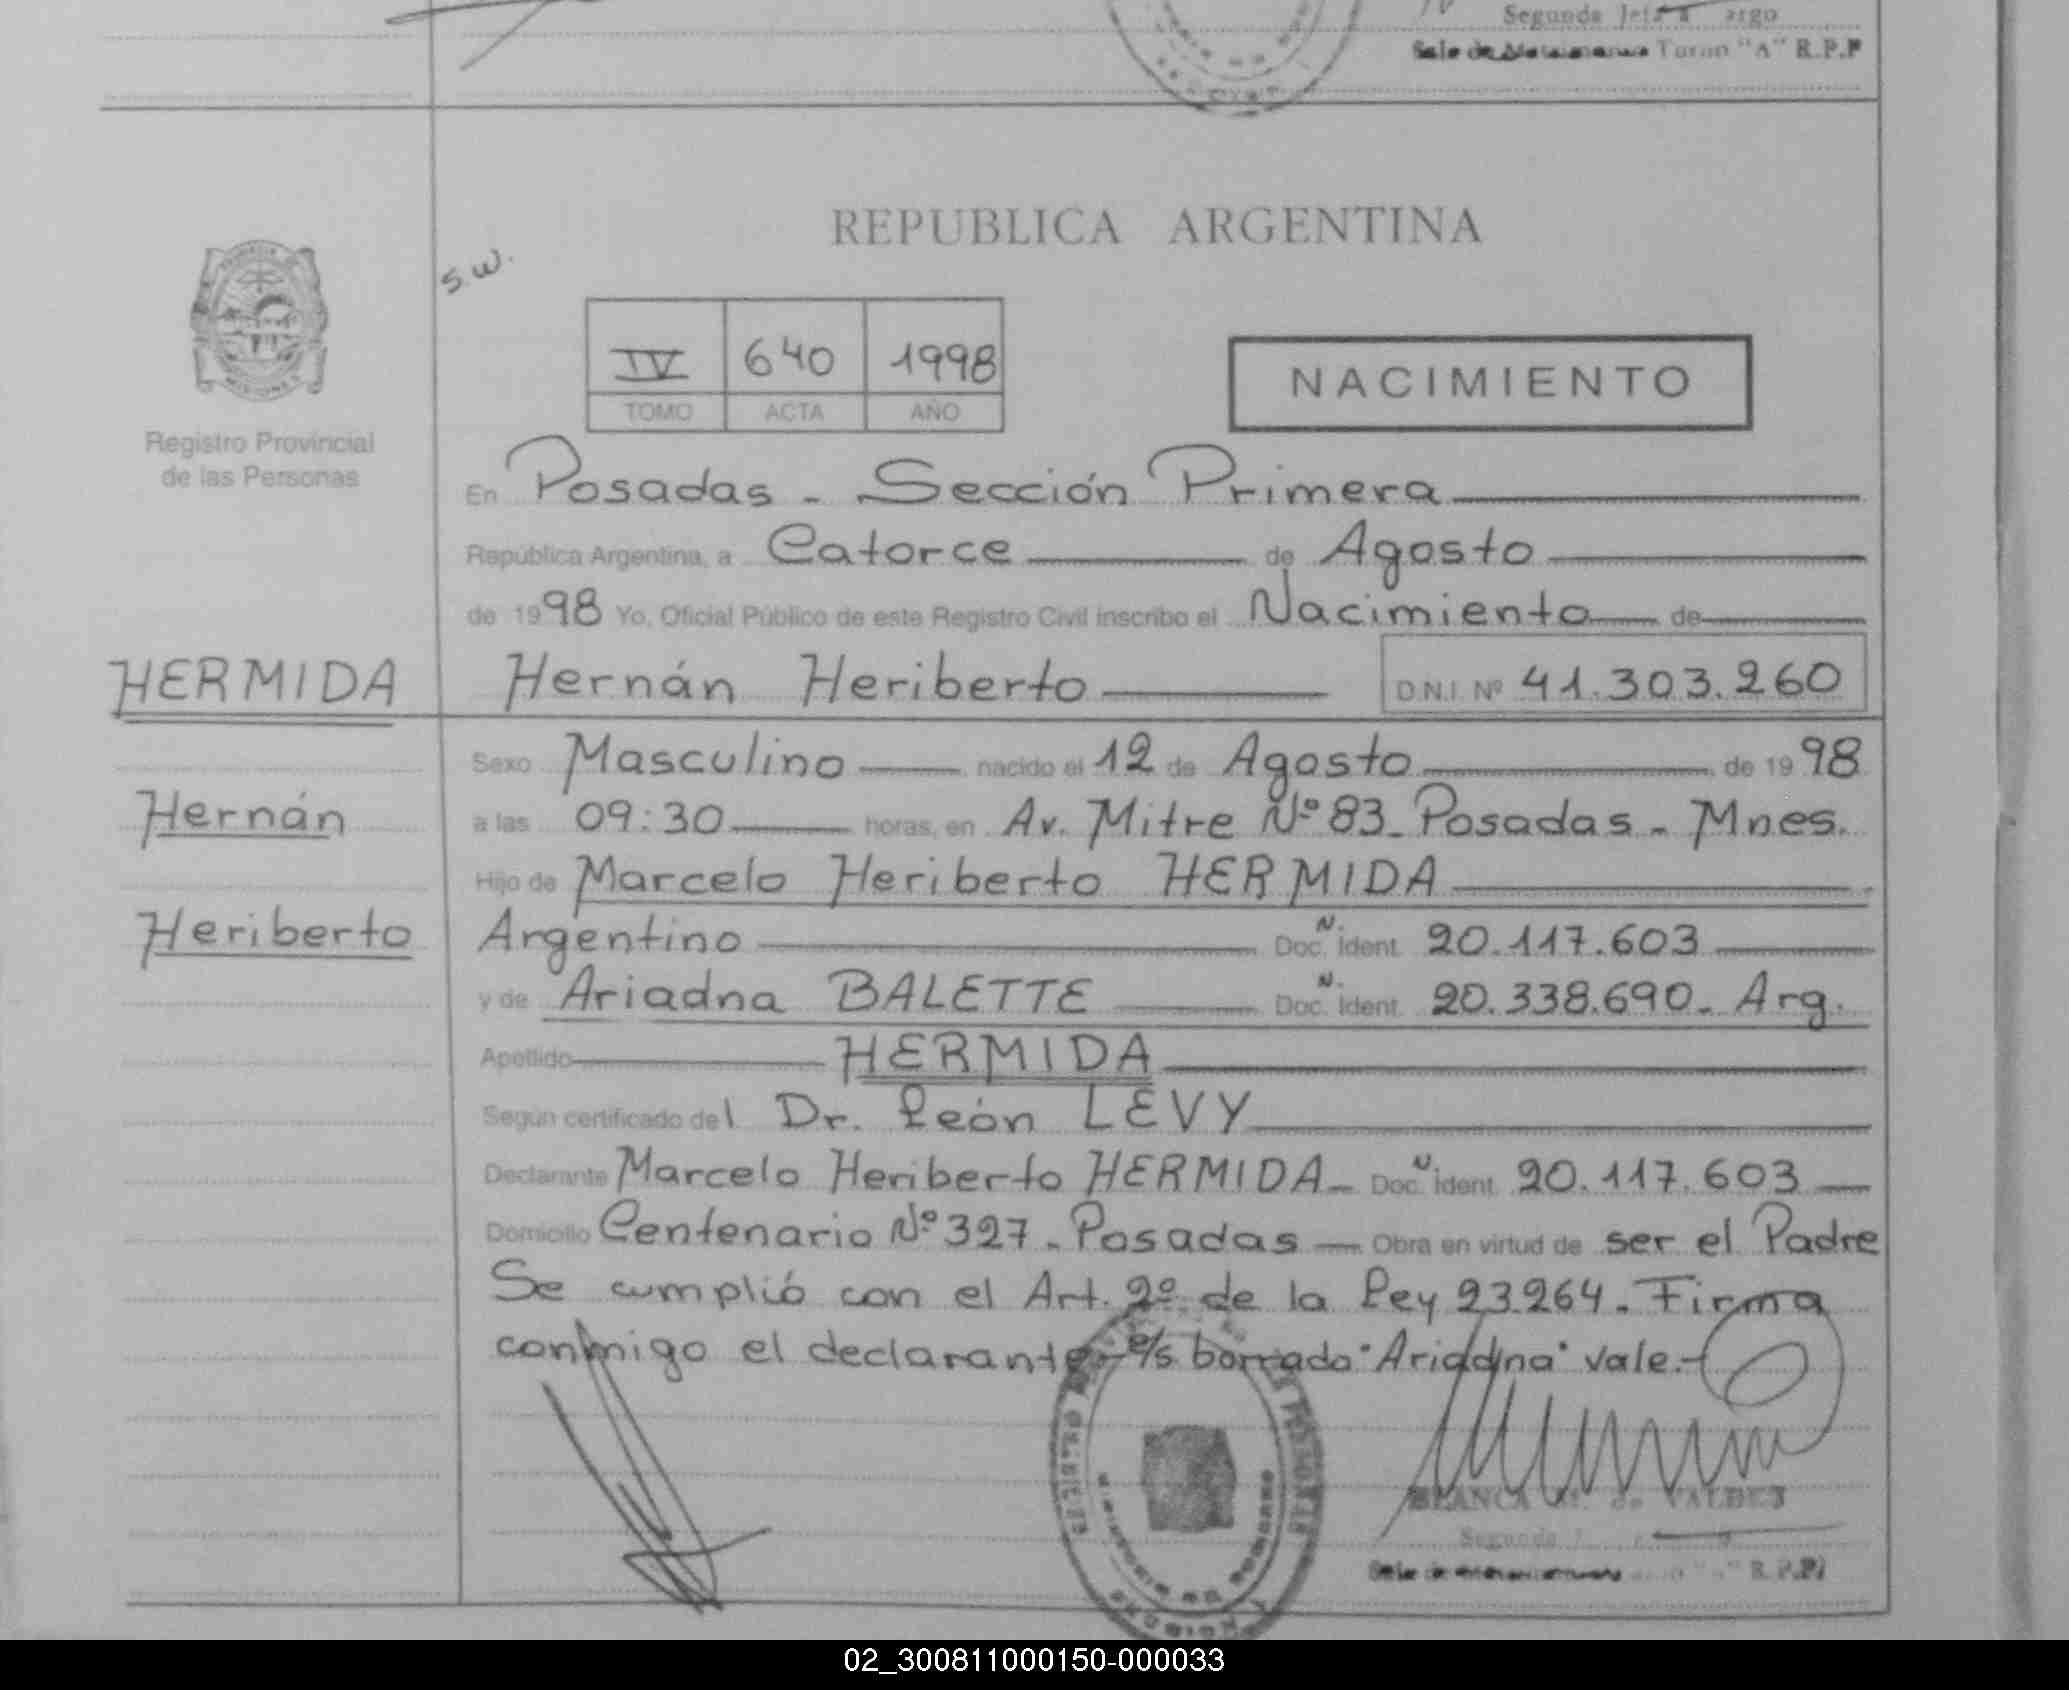 Segunda Jefa a argo
Turno "A" R.P.P
REPUBLICA ARGENTINA
S.W.
IV 640 1998
TOMO ACTA AÑO
NACIMIENTO
Registro Provincial
de las Personas
En Posadas - Sección Primera
República Argentina, a Catorce de Agosto
de 1998 Yo, Oficial Público de este Registro Civil inscribo el Nacimiento de
HERMIDA Hernán Heriberto D.N.I. Nº 41.303.260
Sexo Masculino nacido el 12 de Agosto de 1998
Hernán a las 09:30 horas, en Av. Mitre Nº 83 - Posadas - Mnes.
Hijo de Marcelo Heriberto HERMIDA
Heriberto Argentino Doc. N. Ident. 20.117.603
y de Ariadna BALETTE Doc. N. Ident. 20.338.690 - Arg.
Apellido HERMIDA
Según certificado del Dr. León LEVY
Declarante Marcelo Heriberto HERMIDA - Doc. N. Ident. 20.117.603
Domicilio Centenario Nº 327 - Posadas - Obra en virtud de ser el Padre
Se cumplió con el Art. 2º de la Ley 23.264 - Firma
conmigo el declarante - e/s borrado "Ariadna" vale. -
BLANCA de VALDEZ
Segunda
R.P.P.
02_300811000150-000033